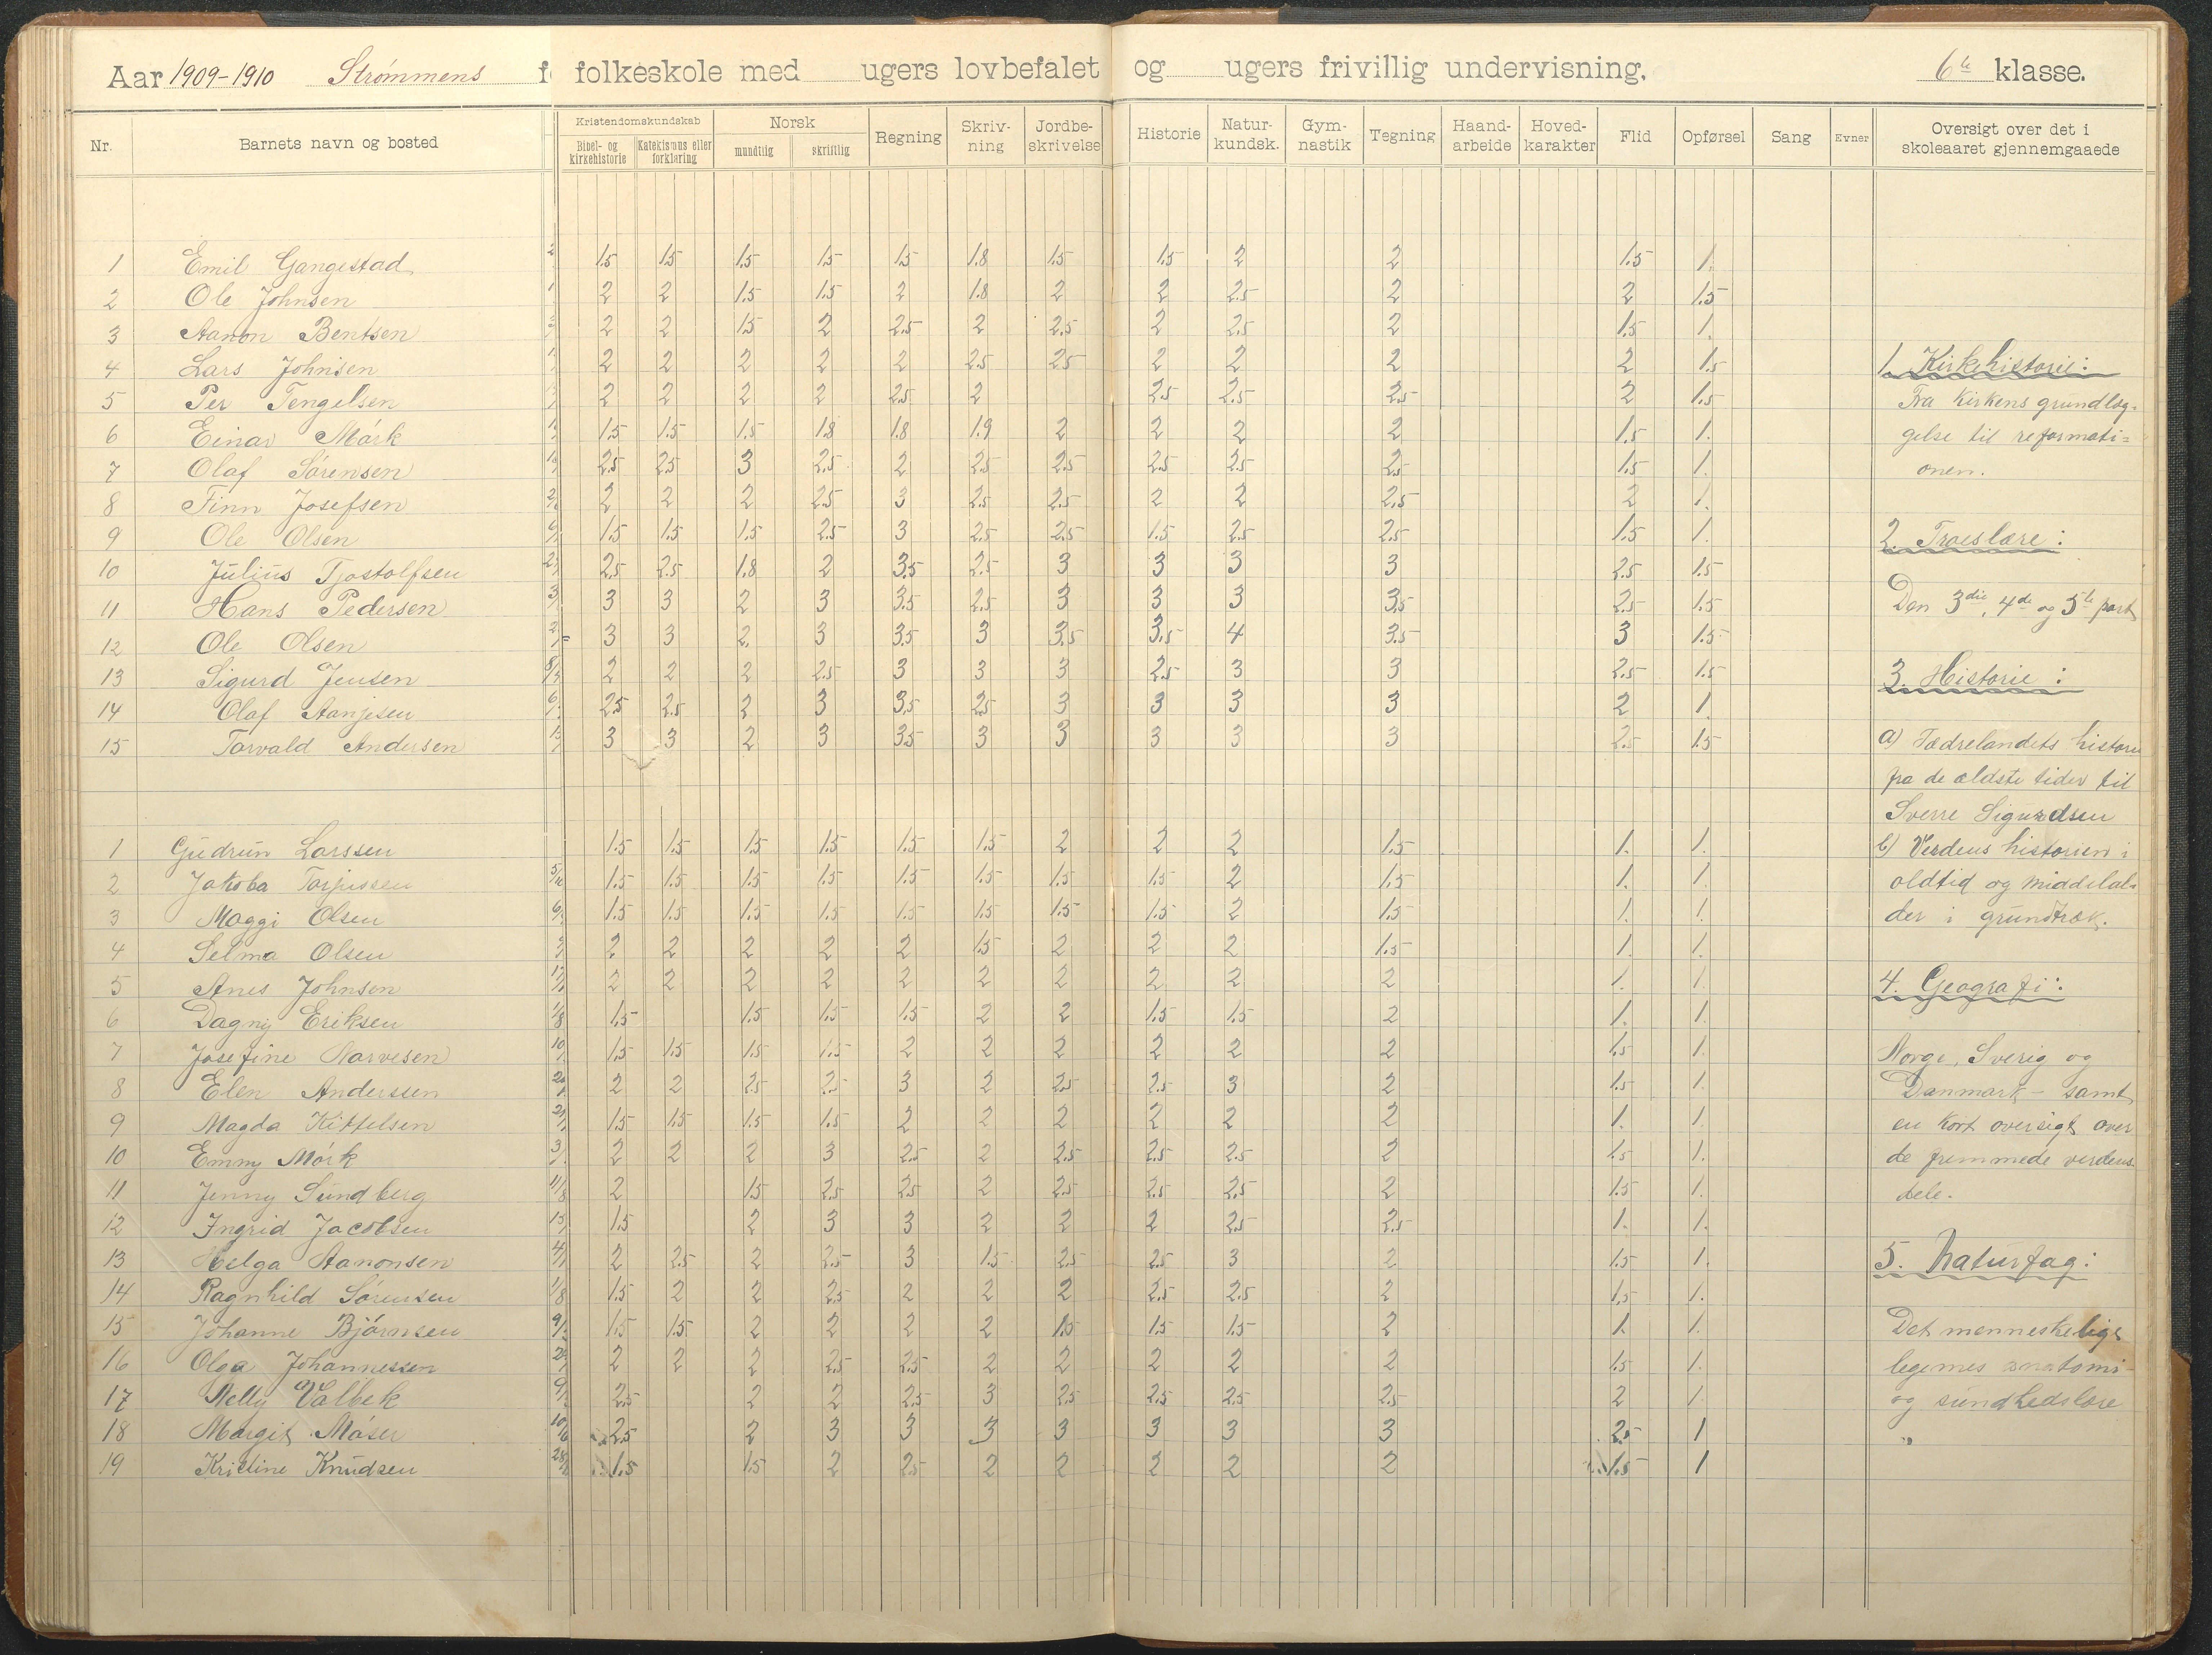 Aar 1909-1910 Strømmens folkeskole med ugers lovbefalet og ugers frivillig undervisning. 6te klasse.
Nr. Barnets navn og bosted Kristendomskundskab Bibel- og kirkehistorie Katekismus eller forklaring Norsk mundtlig skriftlig Regning Skriv-ning Jordbe-skrivelse Historie Natur-kundsk. Gym-nastik Tegning Haand-arbeide Hoved-karakter Flid Opførsel Sang Evner Oversigt over det i skoleaaret gjennemgaaede
1 Emil Gangestad 1.5 1.5 1.5 1.5 1.5 1.8 1.5 1.5 2 2 1.5 1.
2 Ole Johnsen 2 2 1.5 1.5 2 1.8 2 2 2.5 2 2 1.5
3 Aanon Bentsen 2 2 1.5 2 2.5 2 2.5 2 2.5 2 1.5 1.
4 Lars Johnsen 2 2 2 2 2 2.5 2.5 2 2 2 2 1.5
5 Per Tengelsen 2 2 2 2 2.5 2 2.5 2.5 2.5 2 1.5
6 Einar Mørk 1.5 1.5 1.5 1.8 1.8 1.9 2 2 2 2 1.5 1.
7 Olaf Sørensen 2.5 2.5 3 2.5 2 2.5 2.5 2.5 2.5 2.5 1.5 1.
8 Finn Josefsen 2 2 2 2.5 3 2.5 2.5 2 2 2.5 2 1.
9 Ole Olsen 1.5 1.5 1.5 2.5 3 2.5 2.5 1.5 2.5 2.5 1.5 1.
10 Julius Tjostolfsen 2.5 2.5 1.8 2 3.5 2.5 3 3 3 3 2.5 1.5
11 Hans Pedersen 3 3 2 3 3.5 2.5 3 3 3 3.5 2.5 1.5
12 Ole Olsen 3 3 2. 3 3.5 3 3.5 3.5 4 3.5 3 1.5
13 Sigurd Jensen 2 2 2 2.5 3 3 3 2.5 3 3 2.5 1.5
14 Olaf Aanjesen 2.5 2.5 2 3 3.5 2.5 3 3 3 3 2 1.
15 Torvald Andersen 3 3 2 3 3.5 3 3 3 3 3 2.5 1.5
1 Gudrun Larssen 1.5 1.5 1.5 1.5 1.5 1.5 2 2 2 1.5 1. 1.
2 Jakoba Torjussen 1.5 1.5 1.5 1.5 1.5 1.5 1.5 1.5 2 1.5 1. 1.
3 Maggi Olsen 1.5 1.5 1.5 1.5 1.5 1.5 1.5 1.5 2 1.5 1. 1.
4 Selma Olsen 2 2 2 2 2 1.5 2 2 2 1.5 1. 1.
5 Anes Johnson 2 2 2 2 2 2 2 2 2 2 1. 1.
6 Dagny Eriksen 1.5 1.5 1.5 1.5 2 2 1.5 1.5 2 1. 1.
7 Josefine Narvesen 1.5 1.5 1.5 1.5 2 2 2 2 2 2 1.5 1.
8 Elen Anderssen 2 2 2.5 2.5 3 2 2.5 2.5 3 2 1.5 1.
9 Magda Kittelsen 1.5 1.5 1.5 1.5 2 2 2 2 2 2 1. 1.
10 Emmy Mørk 2 2 2 3 2.5 2 2.5 2.5 2.5 2 1.5 1.
11 Jenny Sundberg 2 1.5 2.5 2.5 2 2.5 2.5 2.5 2 1.5 1.
12 Ingrid Jacobsen 1.5 2 3 3 2 2 2 2.5 2.5 1. 1.
13 Helga Aanonsen 2 2.5 2 2.5 3 1.5 2.5 2.5 3 2 1.5 1.
14 Ragnhild Sørensen 1.5 2 2 2.5 2 2 2 2.5 2.5 2 1.5 1.
15 Johanne Bjørnsen 1.5 1.5 2 2 2 2 1.5 1.5 1.5 2 1. 1.
16 Olga Johannessen 2 2 2 2.5 2.5 2 2 2 2 2 1.5 1.
17 Nelly Valbek 2.5 2 2 2.5 3 2.5 2.5 2.5 2.5 2 1.
18 Margit Møser 2.5 2 3 3 3 3 3 3 3 2.5 1
19 Kristine Knudsen 1.5 1.5 2 2.5 2 2 2 2 2 1.5 1
1. Kirkehistorie:
Fra kirkens grundlæg-
gelse til reformati=
onen.
2. Troeslære:
Den 3die, 4de og 5te part
3. Historie:
a) Fædrelandets historie
fra de ældste tider til
Sverre Sigurdsen
b) Verdens historien i
oldtid og middelal-
der i grundtræk.
4. Geografi:
Norge, Sverig og
Danmark - samt
en kort oversigt over
de fremmede verdens-
dele.
5. Naturfag:
Det menneskelige
legemes anatomi-
og sundhedslære